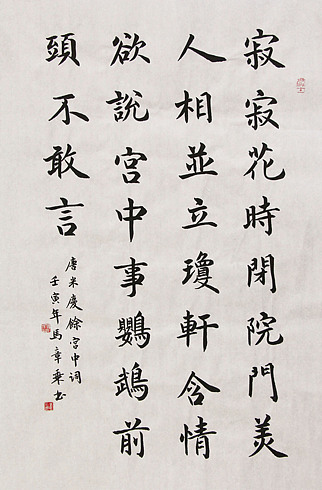 寂寂花時閉院門美
人相並立瓊軒含情
欲說宮中事鸚鵡前
頭不敢言
唐朱慶餘宮中詞
壬寅年馬章乘书